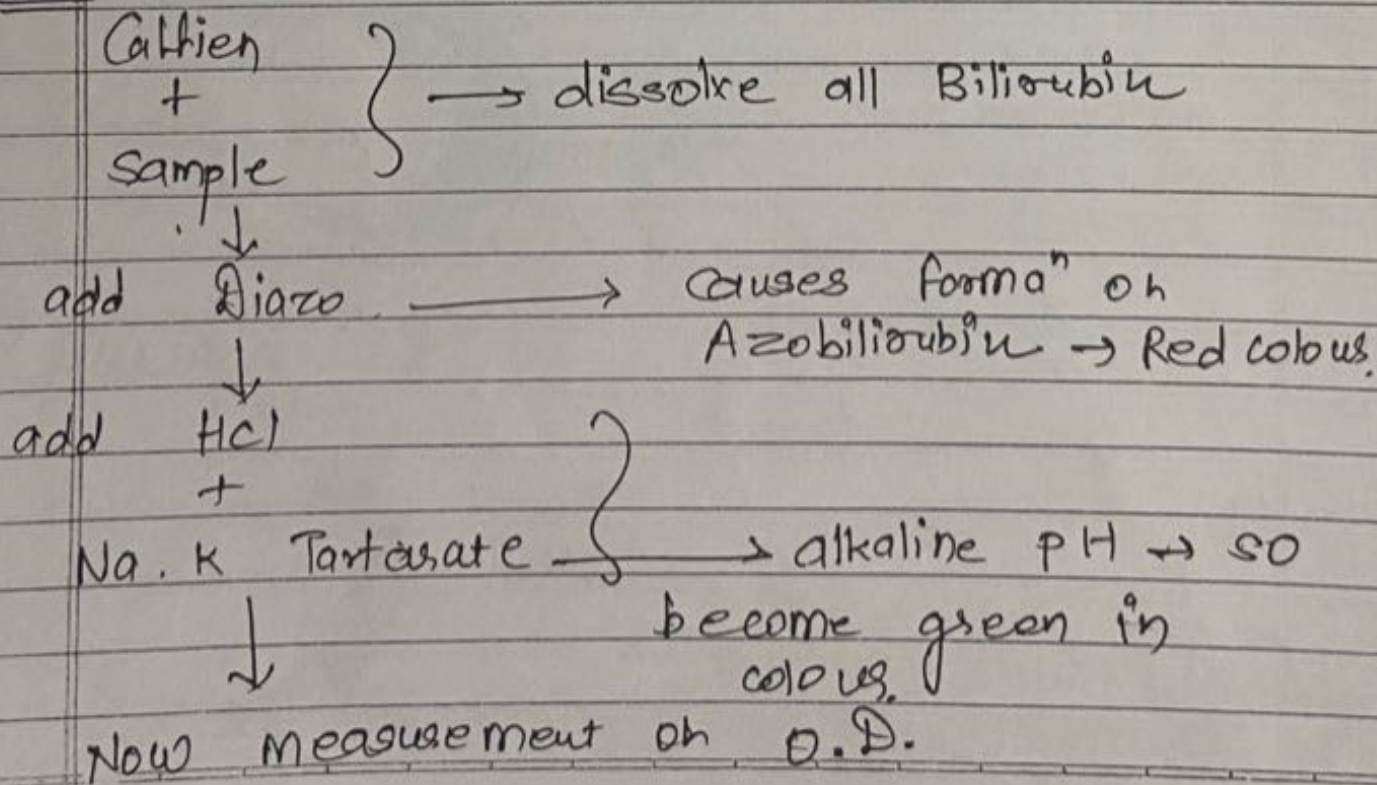 Caffien
+
Sample } → dissolve all Bilirubin
↓
add Diazo → Causes formaⁿ of
Azobilirubin → Red colour.
↓
add HCl
+
Na. K Tartarate } → alkaline pH → so
become green in
colour.
↓
Now measurement of O.D.